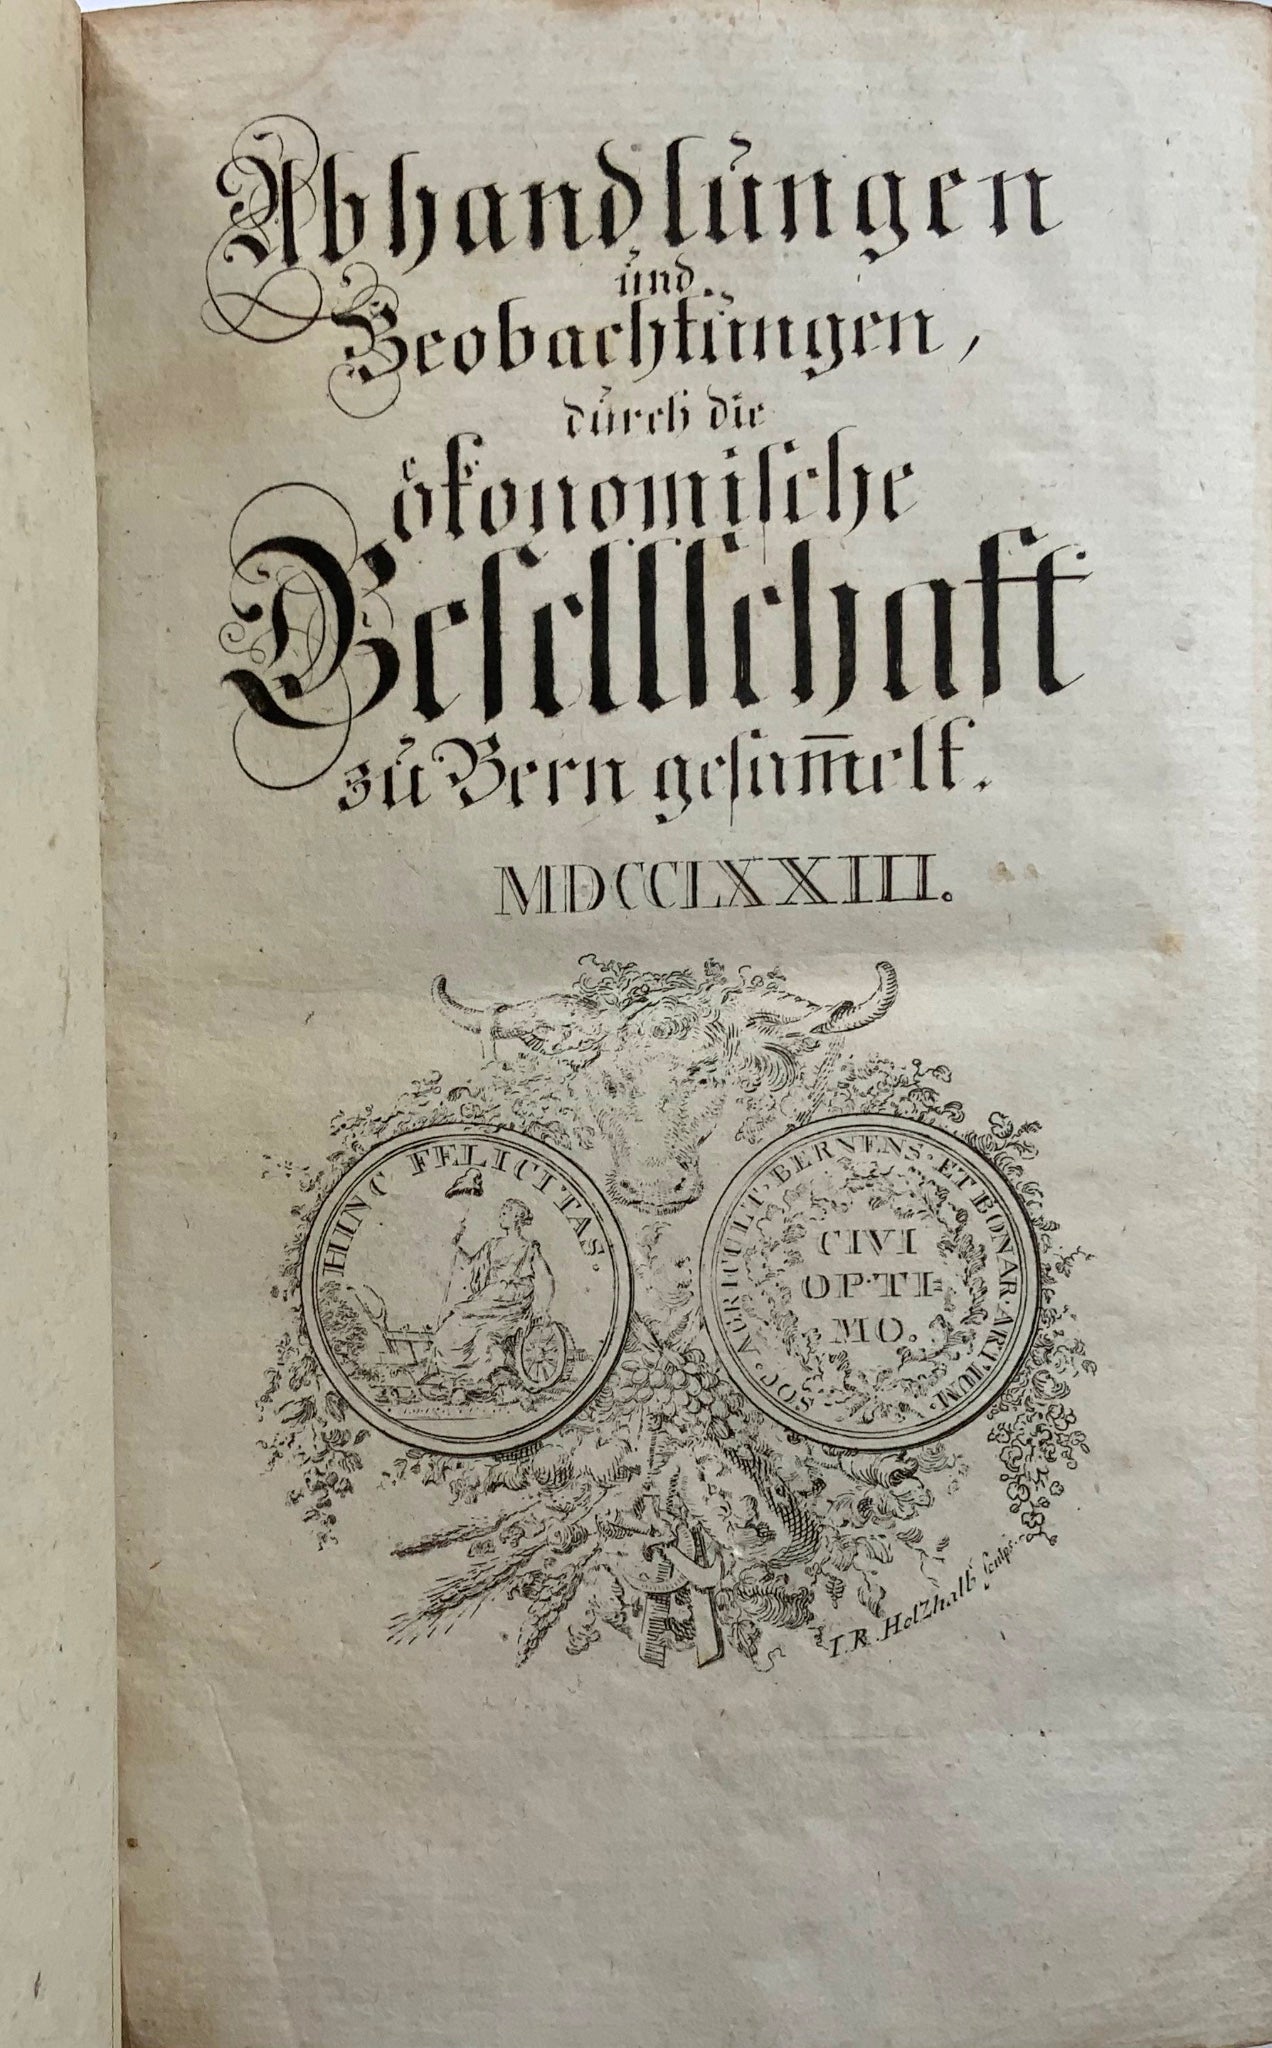 Abhandlungen
und
Beobachtungen,
durch die
ökonomische
Gesellschaft
zu Bern gesam̅elt.
MDCCLXXIII.
HINC FELICITAS.
SOC. AGRICULT. BERNENS. ET BONAR. ARTIUM.
CIVI
OPTI=
MO.
I. R. Holzhalb sculps.